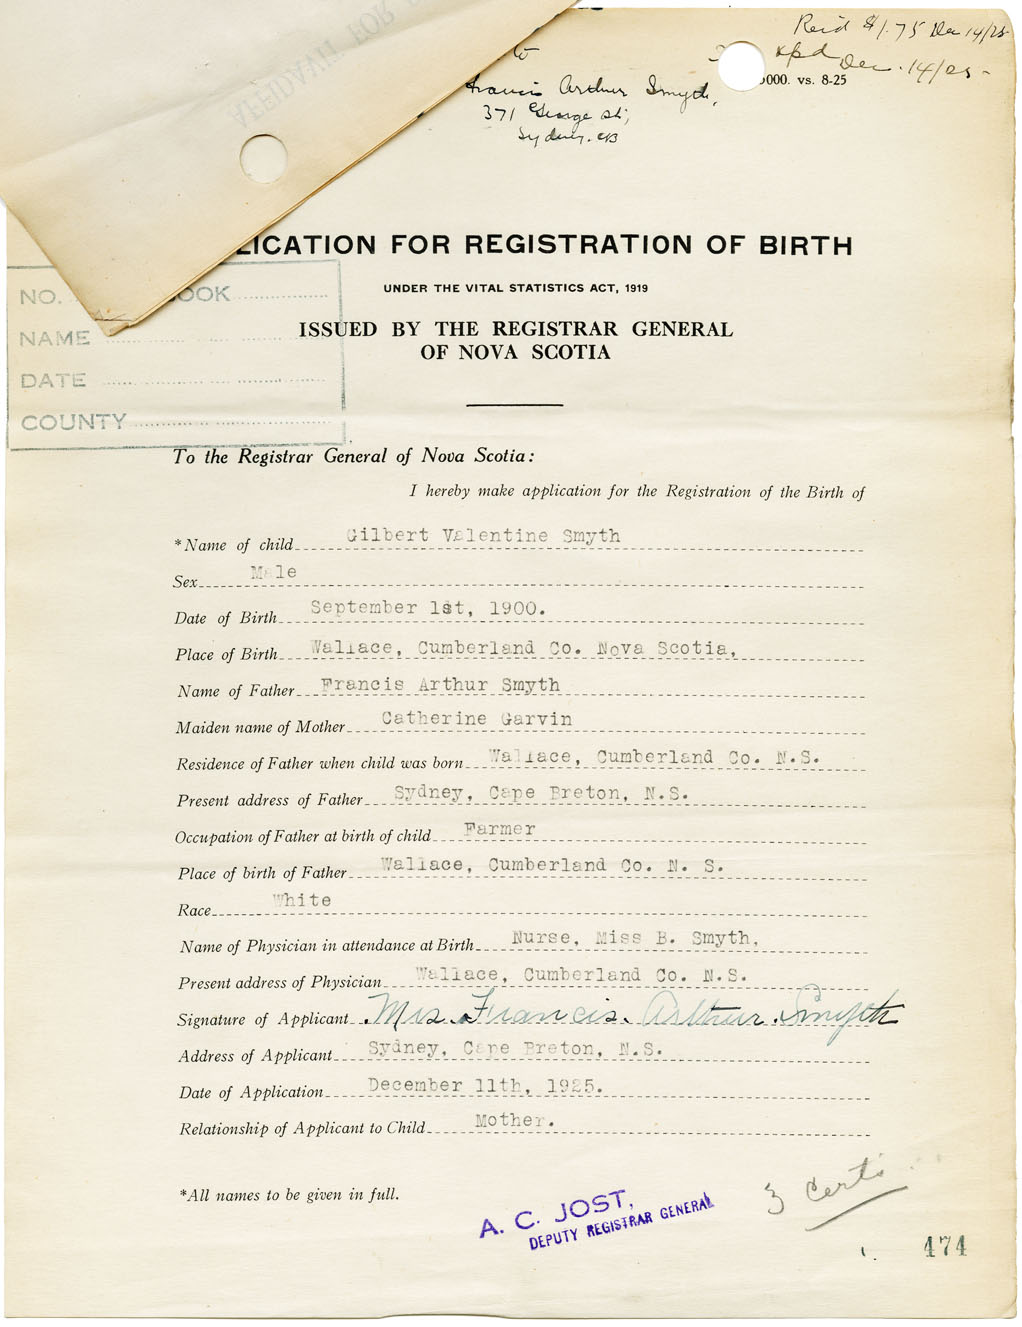 AFFIDAVIT FOR
Rec'd $1.75 Dec 14/25
Dec. 14/25-
to
000. vs. 8-25
Francis Arthur Smyth,
371 George St;
Sydney. CB
LICATION FOR REGISTRATION OF BIRTH
UNDER THE VITAL STATISTICS ACT, 1919
ISSUED BY THE REGISTRAR GENERAL
OF NOVA SCOTIA
NO. OOK
NAME
DATE
COUNTY
To the Registrar General of Nova Scotia:
I hereby make application for the Registration of the Birth of
*Name of child Gilbert Valentine Smyth
Sex Male
Date of Birth September 1st, 1900.
Place of Birth Wallace, Cumberland Co. Nova Scotia,
Name of Father Francis Arthur Smyth
Maiden name of Mother Catherine Garvin
Residence of Father when child was born Wallace, Cumberland Co. N.S.
Present address of Father Sydney, Cape Breton, N.S.
Occupation of Father at birth of child Farmer
Place of birth of Father Wallace, Cumberland Co. N. S.
Race White
Name of Physician in attendance at Birth Nurse, Miss B. Smyth,
Present address of Physician Wallace, Cumberland Co. N.S.
Signature of Applicant Mrs. Francis. Arthur. Smyth
Address of Applicant Sydney, Cape Breton, N.S.
Date of Application December 11th, 1925.
Relationship of Applicant to Child Mother.
*All names to be given in full.
3 certs
A. C. JOST,
DEPUTY REGISTRAR GENERAL
474